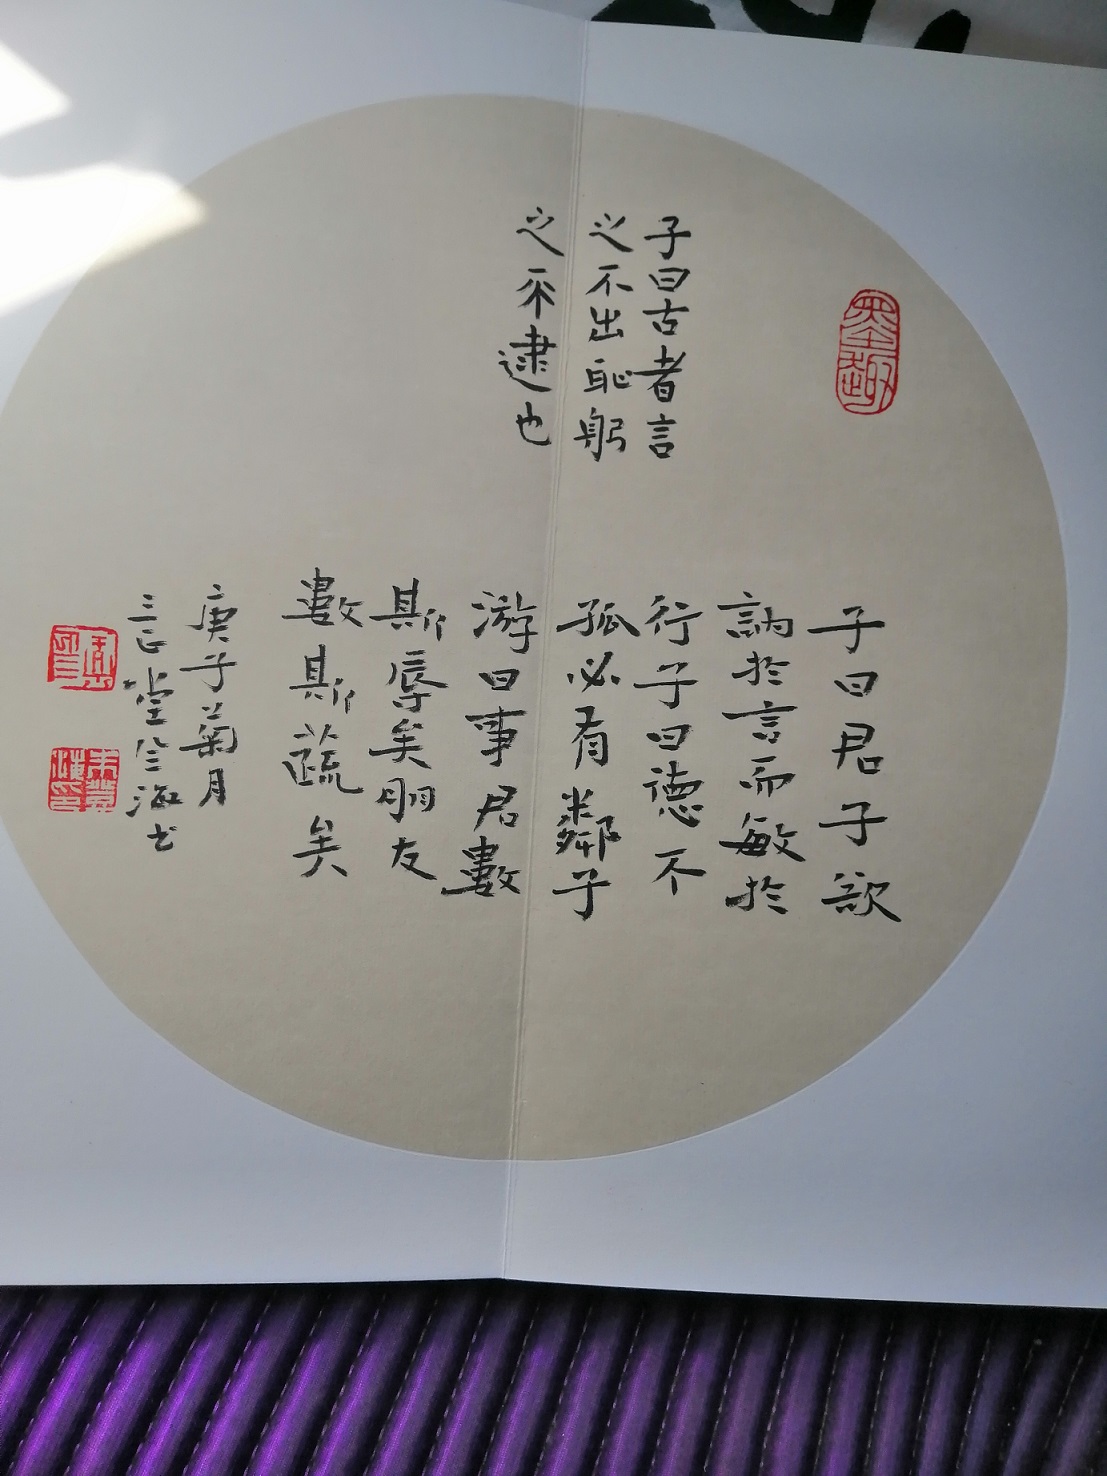 墨趣
子曰古者言
之不出恥躬
之不逮也
子曰君子欲
訥於言而敏於
行子曰德不
孤必有鄰子
游曰事君數
斯辱矣朋友
數斯疏矣
庚子菊月
三正堂
海书